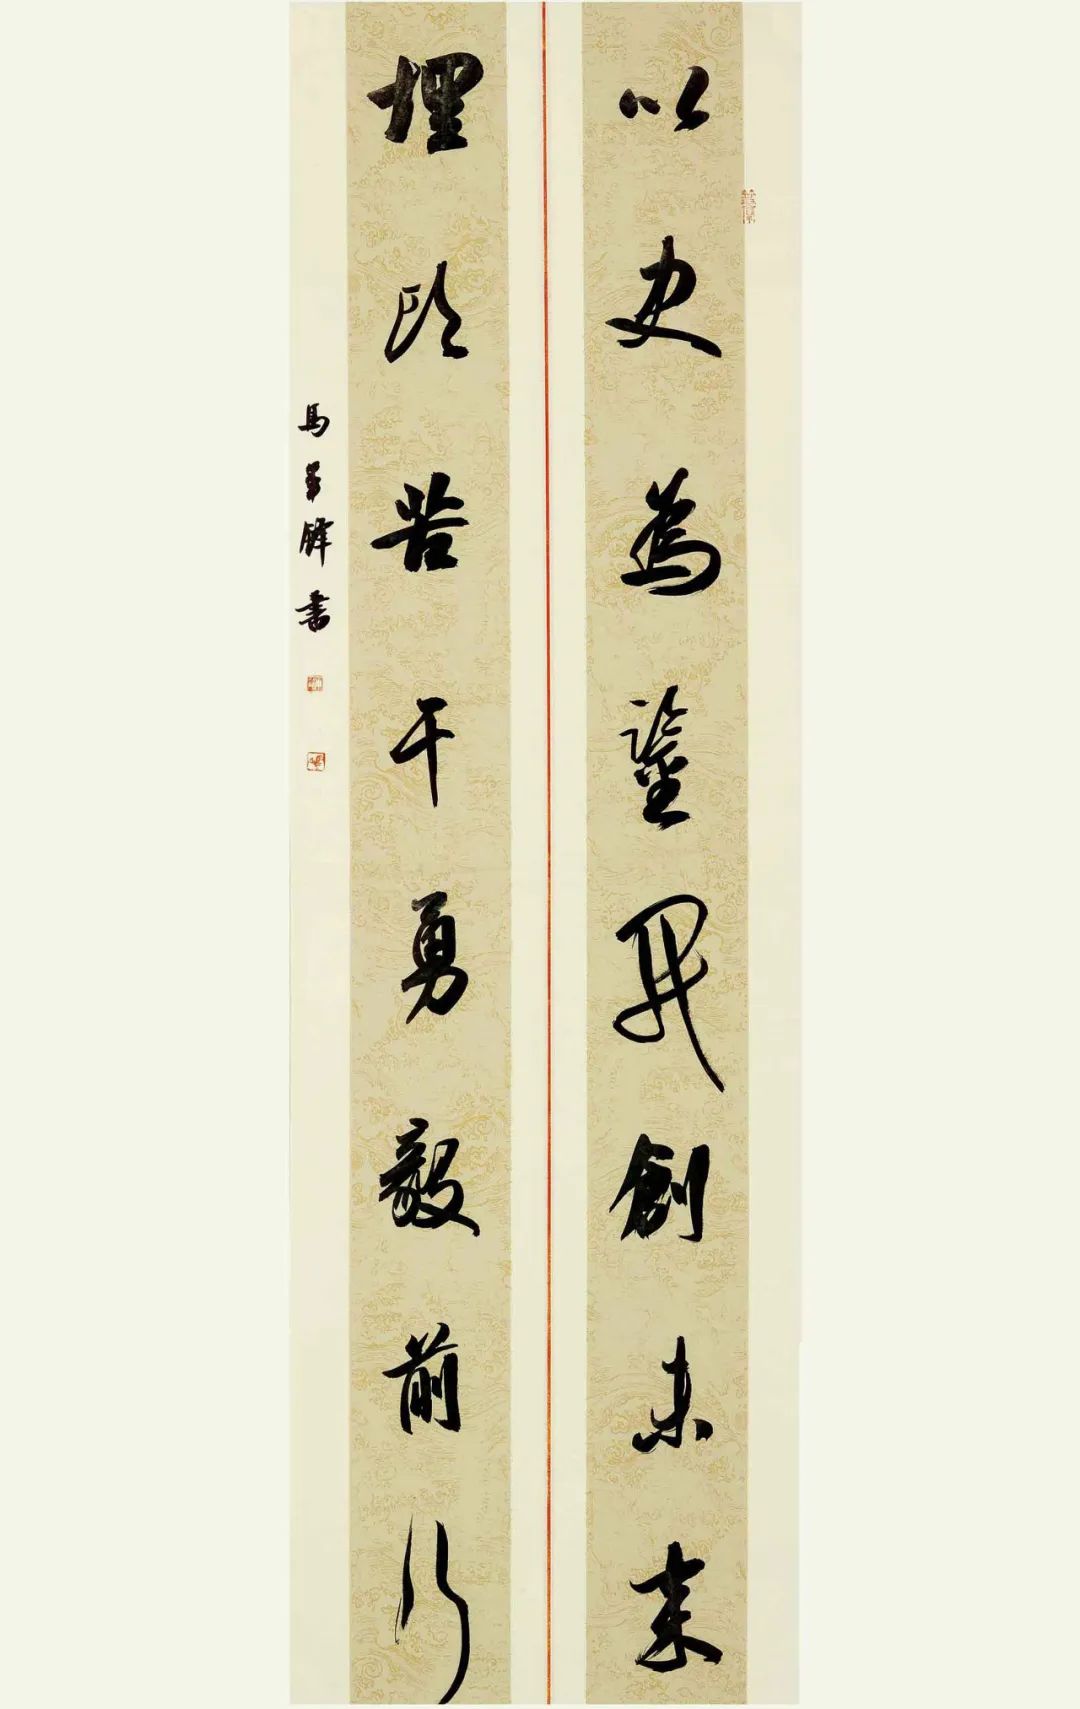 以史為鑒開創未来
埋头苦干勇毅前行
馬 鋒書